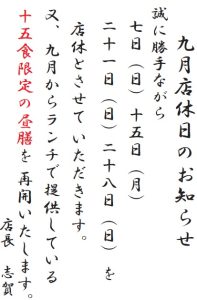 九月店休日のお知らせ
誠に勝手ながら
七日（日）十五日（月）
二十一日（日）二十八日（日）を
店休とさせていただきます。
又、九月からランチで提供している
十五食限定の昼膳を再開いたします。
店長　志賀